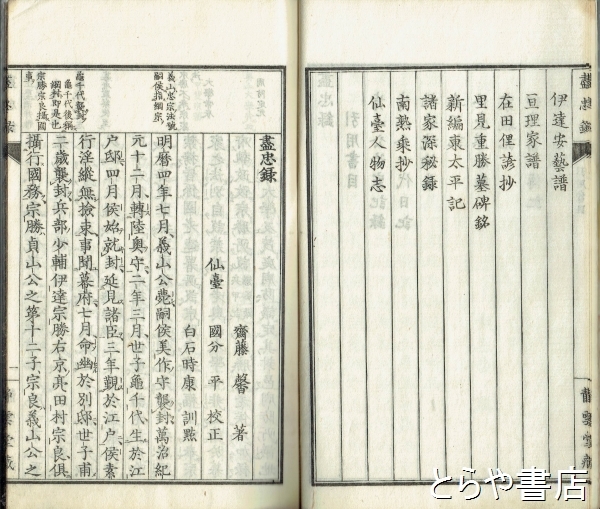 伊達安藝譜
亘理家譜
在田俚諺抄
里見重勝墓碑銘
新編東太平記
諸家深秘録
南熱乗抄
仙臺人物志
盡忠錄
盡忠錄
仙臺
齋藤馨著
國分平校正
白石時康訓點
明曆四年七月義山公薨嗣侯美作守襲封萬治紀
元十二月轉陸奥守二年三月世子龜千代生於江
户邸四月侯始就封延見諸臣三年覲於江户侯素
行淫縱無檢束事聞幕府七月命幽於別邸世子甫
二歲襲封兵部少輔伊達宗勝右京亮田村宗良俱
攝行國務宗勝貞山公之第十二子宗良義山公之
義山忠宗法號
嗣侯指綱宗
龜千代襲封
龜千代後稱
綱村即是也
宗勝宗良攝國
事
靜雲堂藏
とらや書店